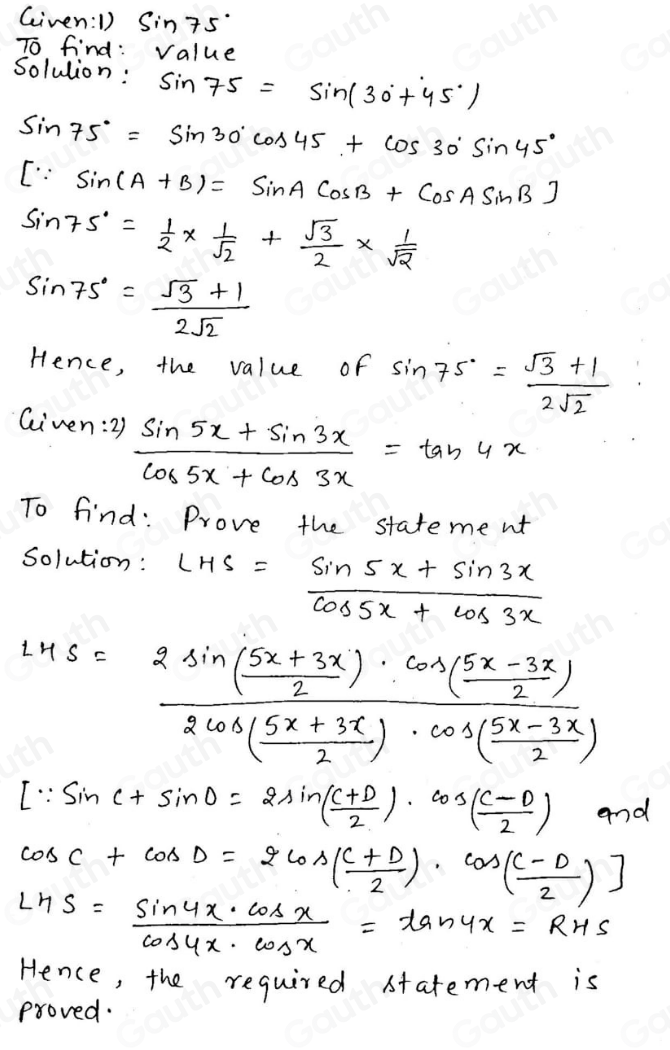 Given:1) Sin 75°
To find: value
Solution: Sin 75 = Sin(30°+45°)
Sin 75° = Sin 30° cos 45 + cos 30° Sin 45°
[∵ Sin(A+B) = SinA CosB + CosA SinB]
Sin 75° = 1/2 × 1/√2 + √3/2 × 1/√2
Sin 75° = (√3 + 1)/(2√2)
Hence, the value of sin 75° = (√3 + 1)/(2√2)
Given:2) (Sin 5x + Sin 3x)/(Cos 5x + Cos 3x) = tan 4x
To find: Prove the statement
Solution: LHS = (Sin 5x + Sin 3x)/(Cos 5x + cos 3x)
LHS = (2 sin((5x + 3x)/2) · cos((5x - 3x)/2))/(2 cos((5x + 3x)/2) · cos((5x - 3x)/2))
[∵ Sin C + Sin D = 2 sin((C+D)/2) · cos((C-D)/2) and
cos C + cos D = 2 cos((C+D)/2) · cos((C-D)/2)]
LHS = (Sin 4x · cos x)/(cos 4x · cos x) = tan 4x = RHS
Hence, the required statement is
proved.